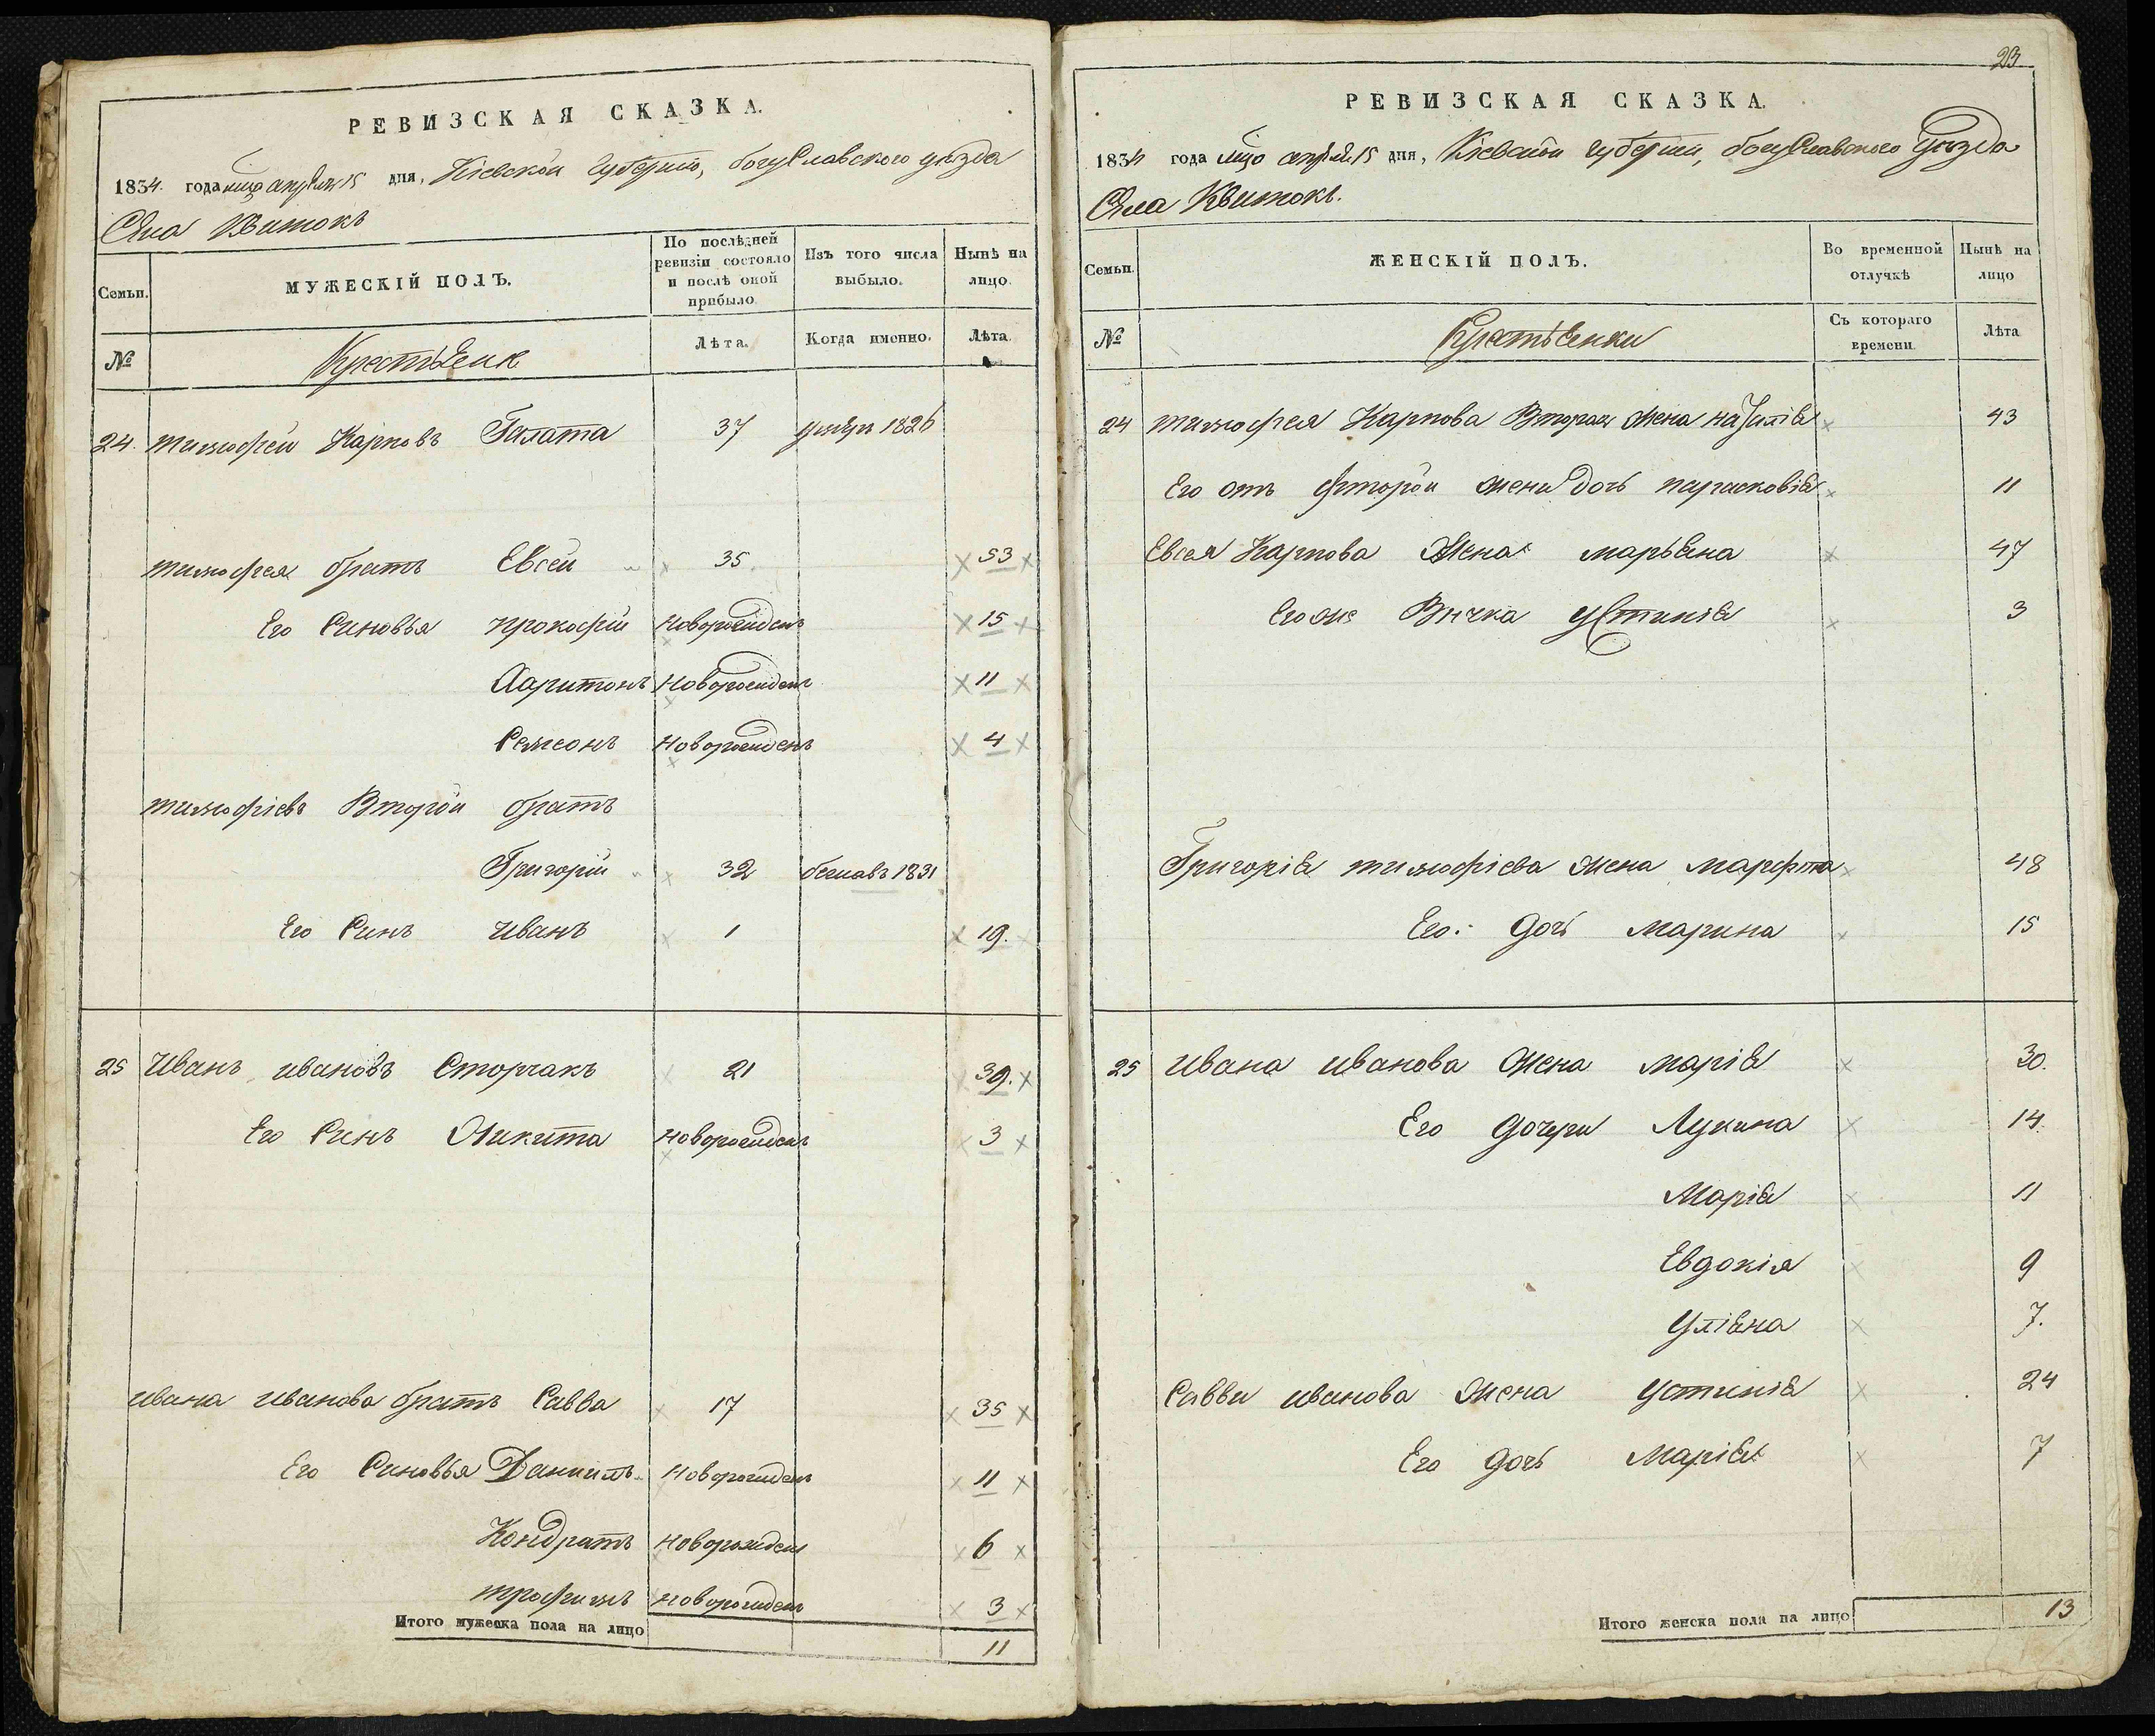 РЕВИЗСКАЯ СКАЗКА.
1834. года апреля 15 дня, Кіевской Губерніи, богуславского уѣзда
Села Квитокъ
Семьи.
МУЖЕСКІЙ ПОЛЪ.
По послѣдней ревизіи состояло и послѣ оной прибыло.
Изъ того числа выбыло.
Нынѣ на лицо.
№
Крестьяне
Лѣта.
Когда именно.
Лѣта.
24. тимофей Карповъ Галата 37 умеръ 1826
тимофея братъ Евсей 35 53
Его Синовья прокофій новорожденъ 15
Харитонъ новорожденъ 11
Семеонъ новорожденъ 4
тимофіевъ Второй братъ
Григорій 32 бежавъ 1831
Его Синъ иванъ 1 19.
25 Иванъ ивановъ Сторчакъ 21 39.
Его Синъ Никита новорожденъ 3
ивана иванова братъ Савва 17 35
Его Синовья Даниилъ новорожденъ 11
Кондратъ новорожденъ 6
трофимъ новорожденъ 3
Итого мужеска пола на лицо 11
23
РЕВИЗСКАЯ СКАЗКА.
1834 года апреля 15 дня, Кіевской губерніи, богуславского уѣзда
Села Квитокъ.
Семьи.
ЖЕНСКІЙ ПОЛЪ.
Во временной отлучкѣ
Нынѣ на лицо
№
Крестьянки
Съ котораго времени.
Лѣта
24 тимофея Карпова Вторая жена наталія 43
Его отъ фторой жени дочь парасковія 11
Евсея Карпова жена марьяна 47
Его же Внучка Устинія 3
Григорія тимофіева жена марфта 48
Его дочь марина 15
25 ивана иванова жена марія 30.
Его дочери Лукина 14.
Марія 11
Евдокія 9
Уліяна 7.
Савви иванова жена Устинія 24
Его дочь Марія 7
Итого женска пола на лицо 13